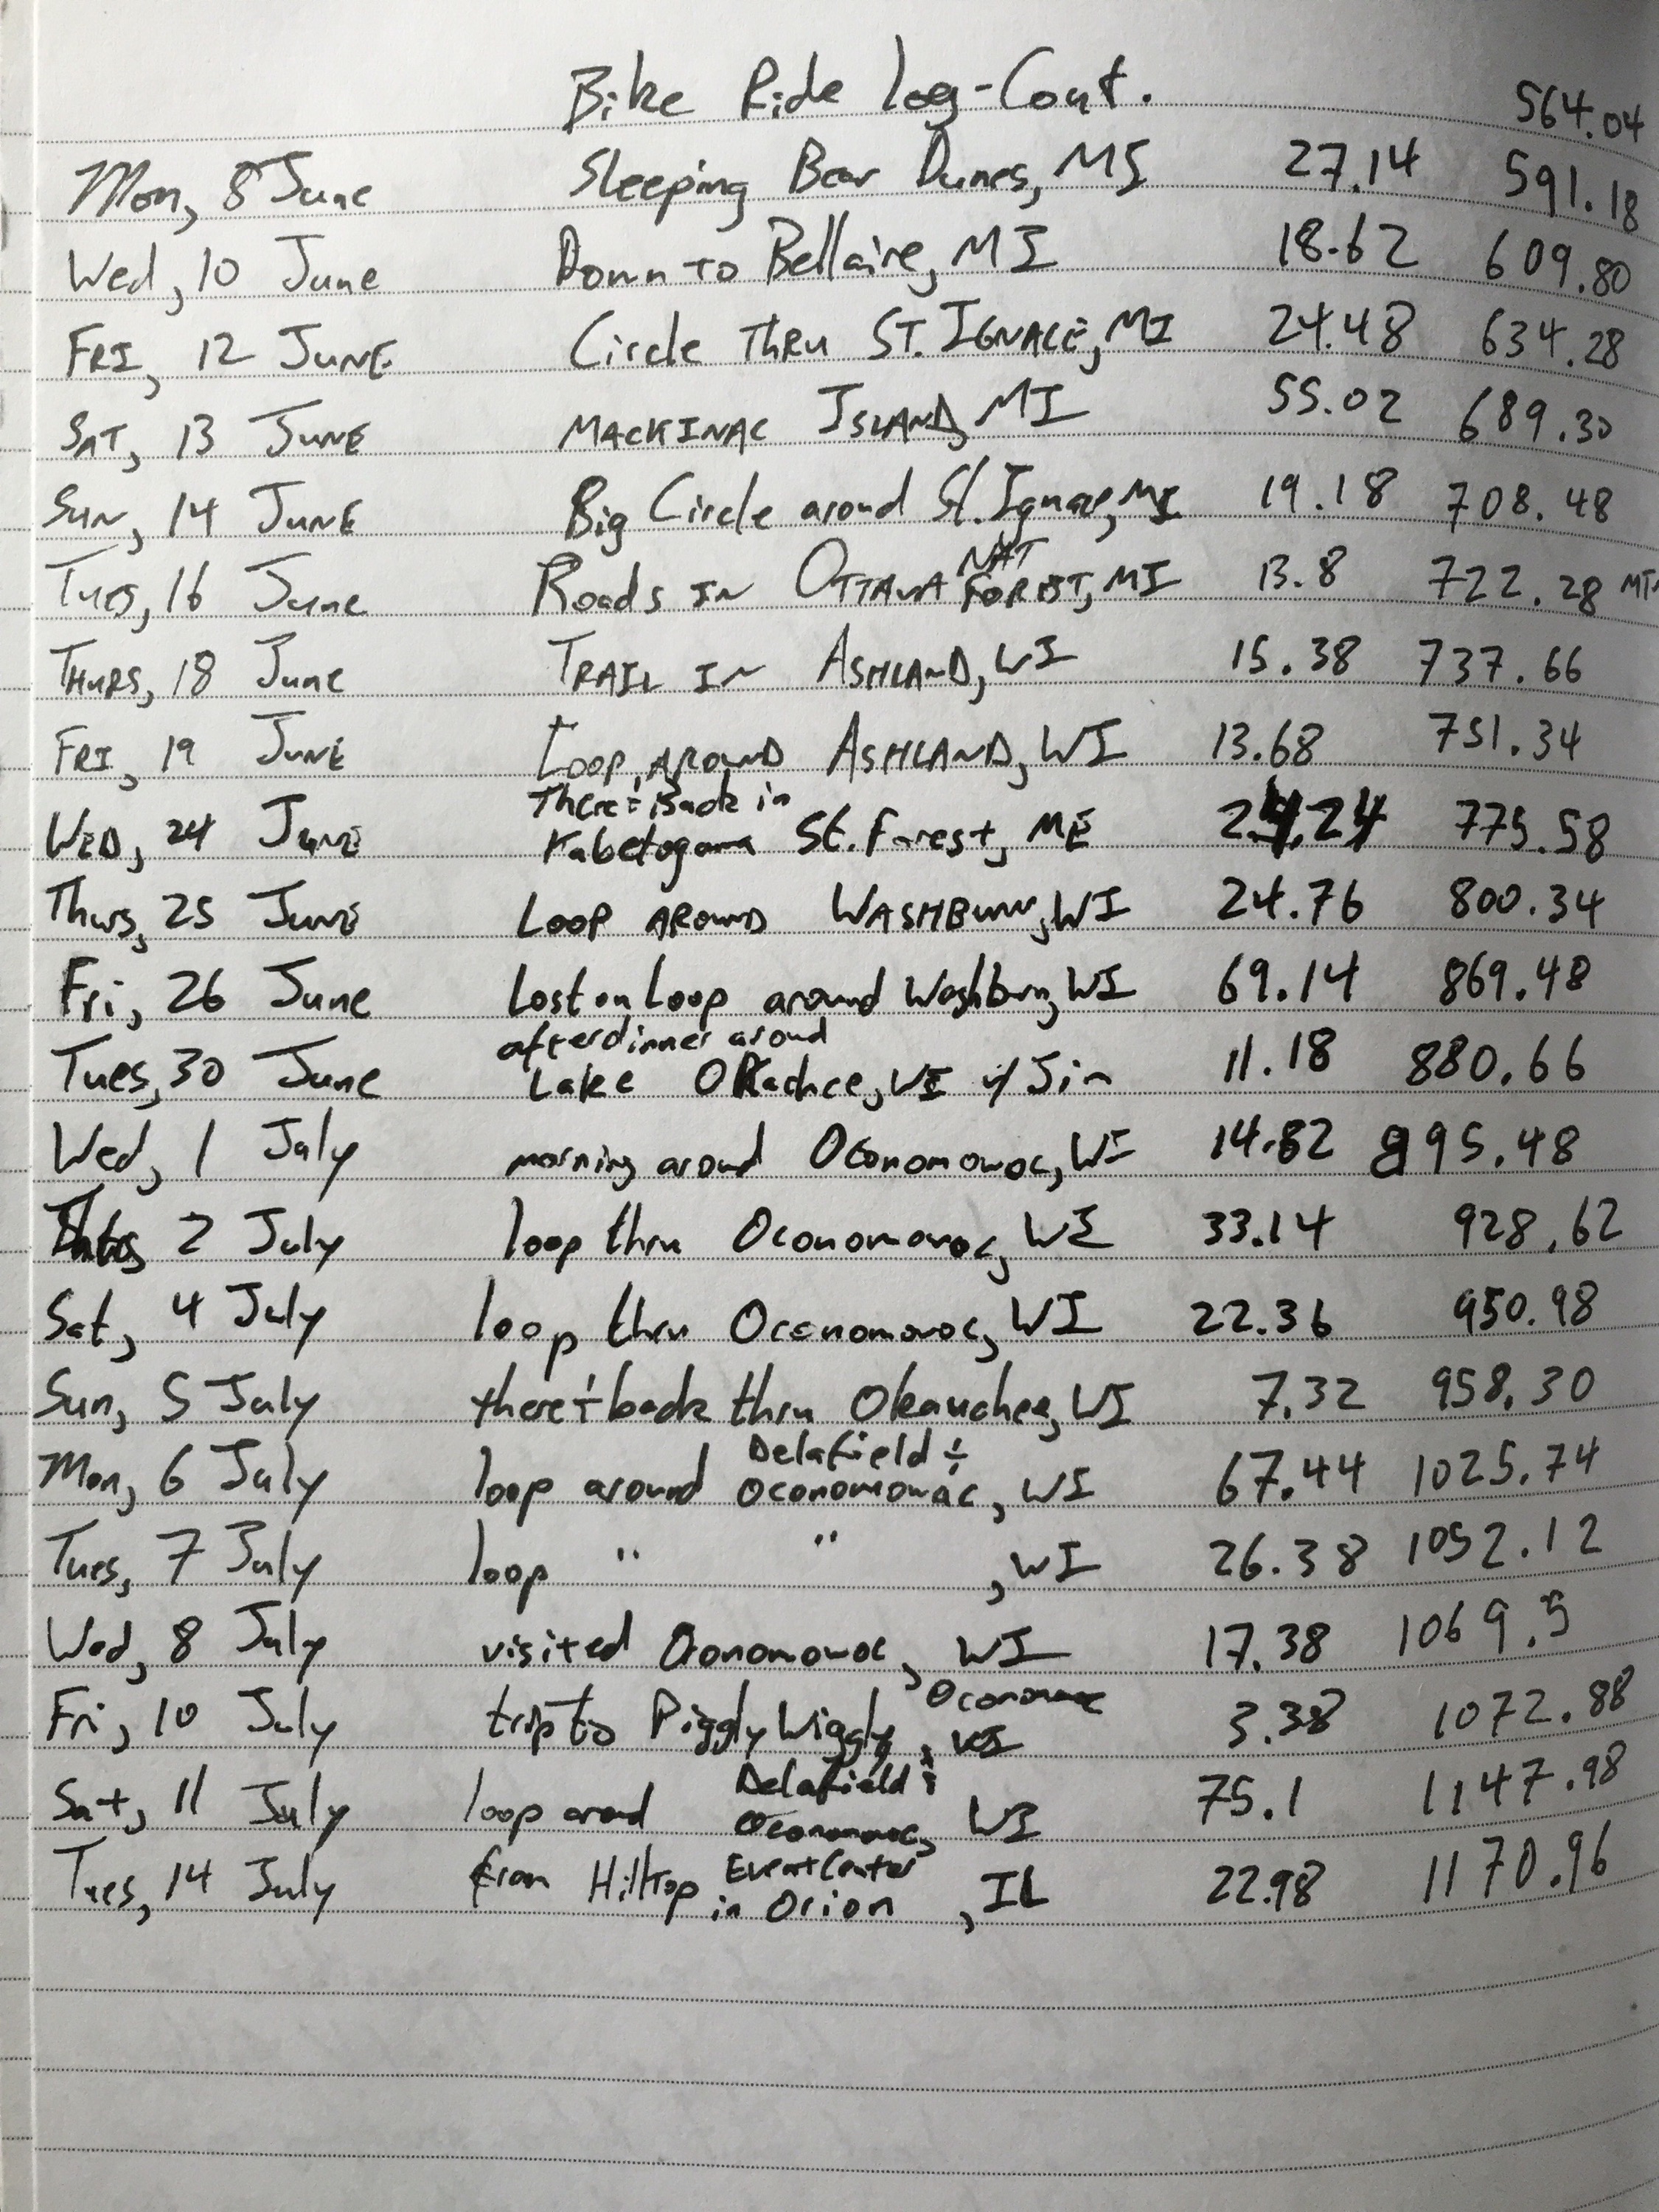 Bike Ride Log-Cont. 564.04
Mon, 8 June Sleeping Bear Dunes, MI 27.14 591.18
Wed, 10 June Down to Bellaire, MI 18.62 609.80
FRI, 12 JUNE Circle THRU ST. IGNACE, MI 24.48 634.28
SAT, 13 JUNE MACKINAC ISLAND, MI 55.02 689.30
SUN, 14 JUNE Big Circle around St. Ignace, MI 19.18 708.48
NAT
Tues, 16 June Roads IN OTTAWA FOREST, MI 13.8 722.28
THURS, 18 June TRAIL IN ASHLAND, WI 15.38 737.66
FRI, 19 JUNE LOOP AROUND ASHLAND, WI 13.68 751.34
There + Back in
WED, 24 JUNE Kabetogama St. Forest, 24.24 775.58
Thurs, 25 JUNE LOOP AROUND WASHBURN, WI 24.76 800.34
Fri, 26 June Lost on Loop around Washburn, WI 69.14 869.48
after dinner around
Tues, 30 June Lake Okachee, WI w/ Jim 11.18 880.66
Wed, 1 July morning around Oconomowoc, WI 14.82 895.48
2 July loop thru Oconomowoc, WI 33.14 928.62
Sat, 4 July loop thru Oconomowoc, WI 22.36 950.98
Sun, 5 July there + back thru Okauchee, WI 7.32 958.30
Delafield +
Mon, 6 July loop around Oconomowac, WI 67.44 1025.74
Tues, 7 July loop " " , WI 26.38 1052.12
Wed, 8 July visited Oconomowoc, WI 17.38 1069.5
Oconomowoc
Fri, 10 July trip to Piggly Wiggly, WI 3.38 1072.88
Delafield +
Sat, 11 July loop around Oconomowoc, WI 75.1 1147.98
Event Center
Tues, 14 July from Hilltop in Orion, IL 22.98 1170.96